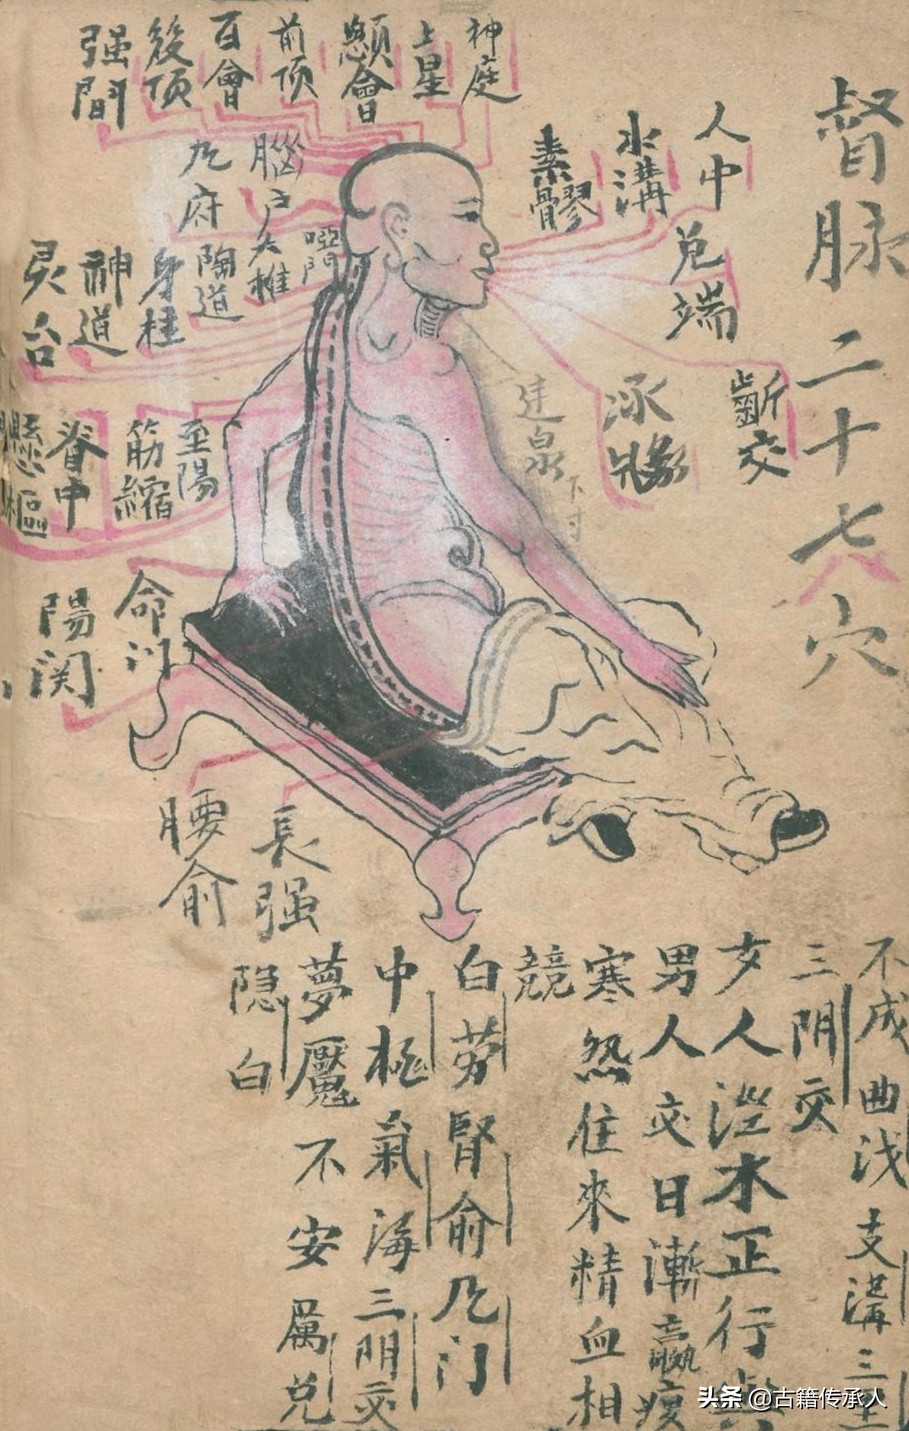 督脉二十七穴
人中
水溝
素髎
兑端
齗交
神庭
上星
顖會
前顶
百會
後顶
强間
腦户
风府
啞門
大椎
陶道
身柱
神道
灵台
至陽
筋縮
脊中
懸樞
命门
陽関
腰俞
長强
泉
下寸
不成曲浅支溝三里
三阴交
女人淫水正行與
男人交日漸羸瘦
寒热住來精血相
競
白劳腎俞风门
中極氣海三阴交
夢魘不安厲兑
隐白
头条 @古籍传承人